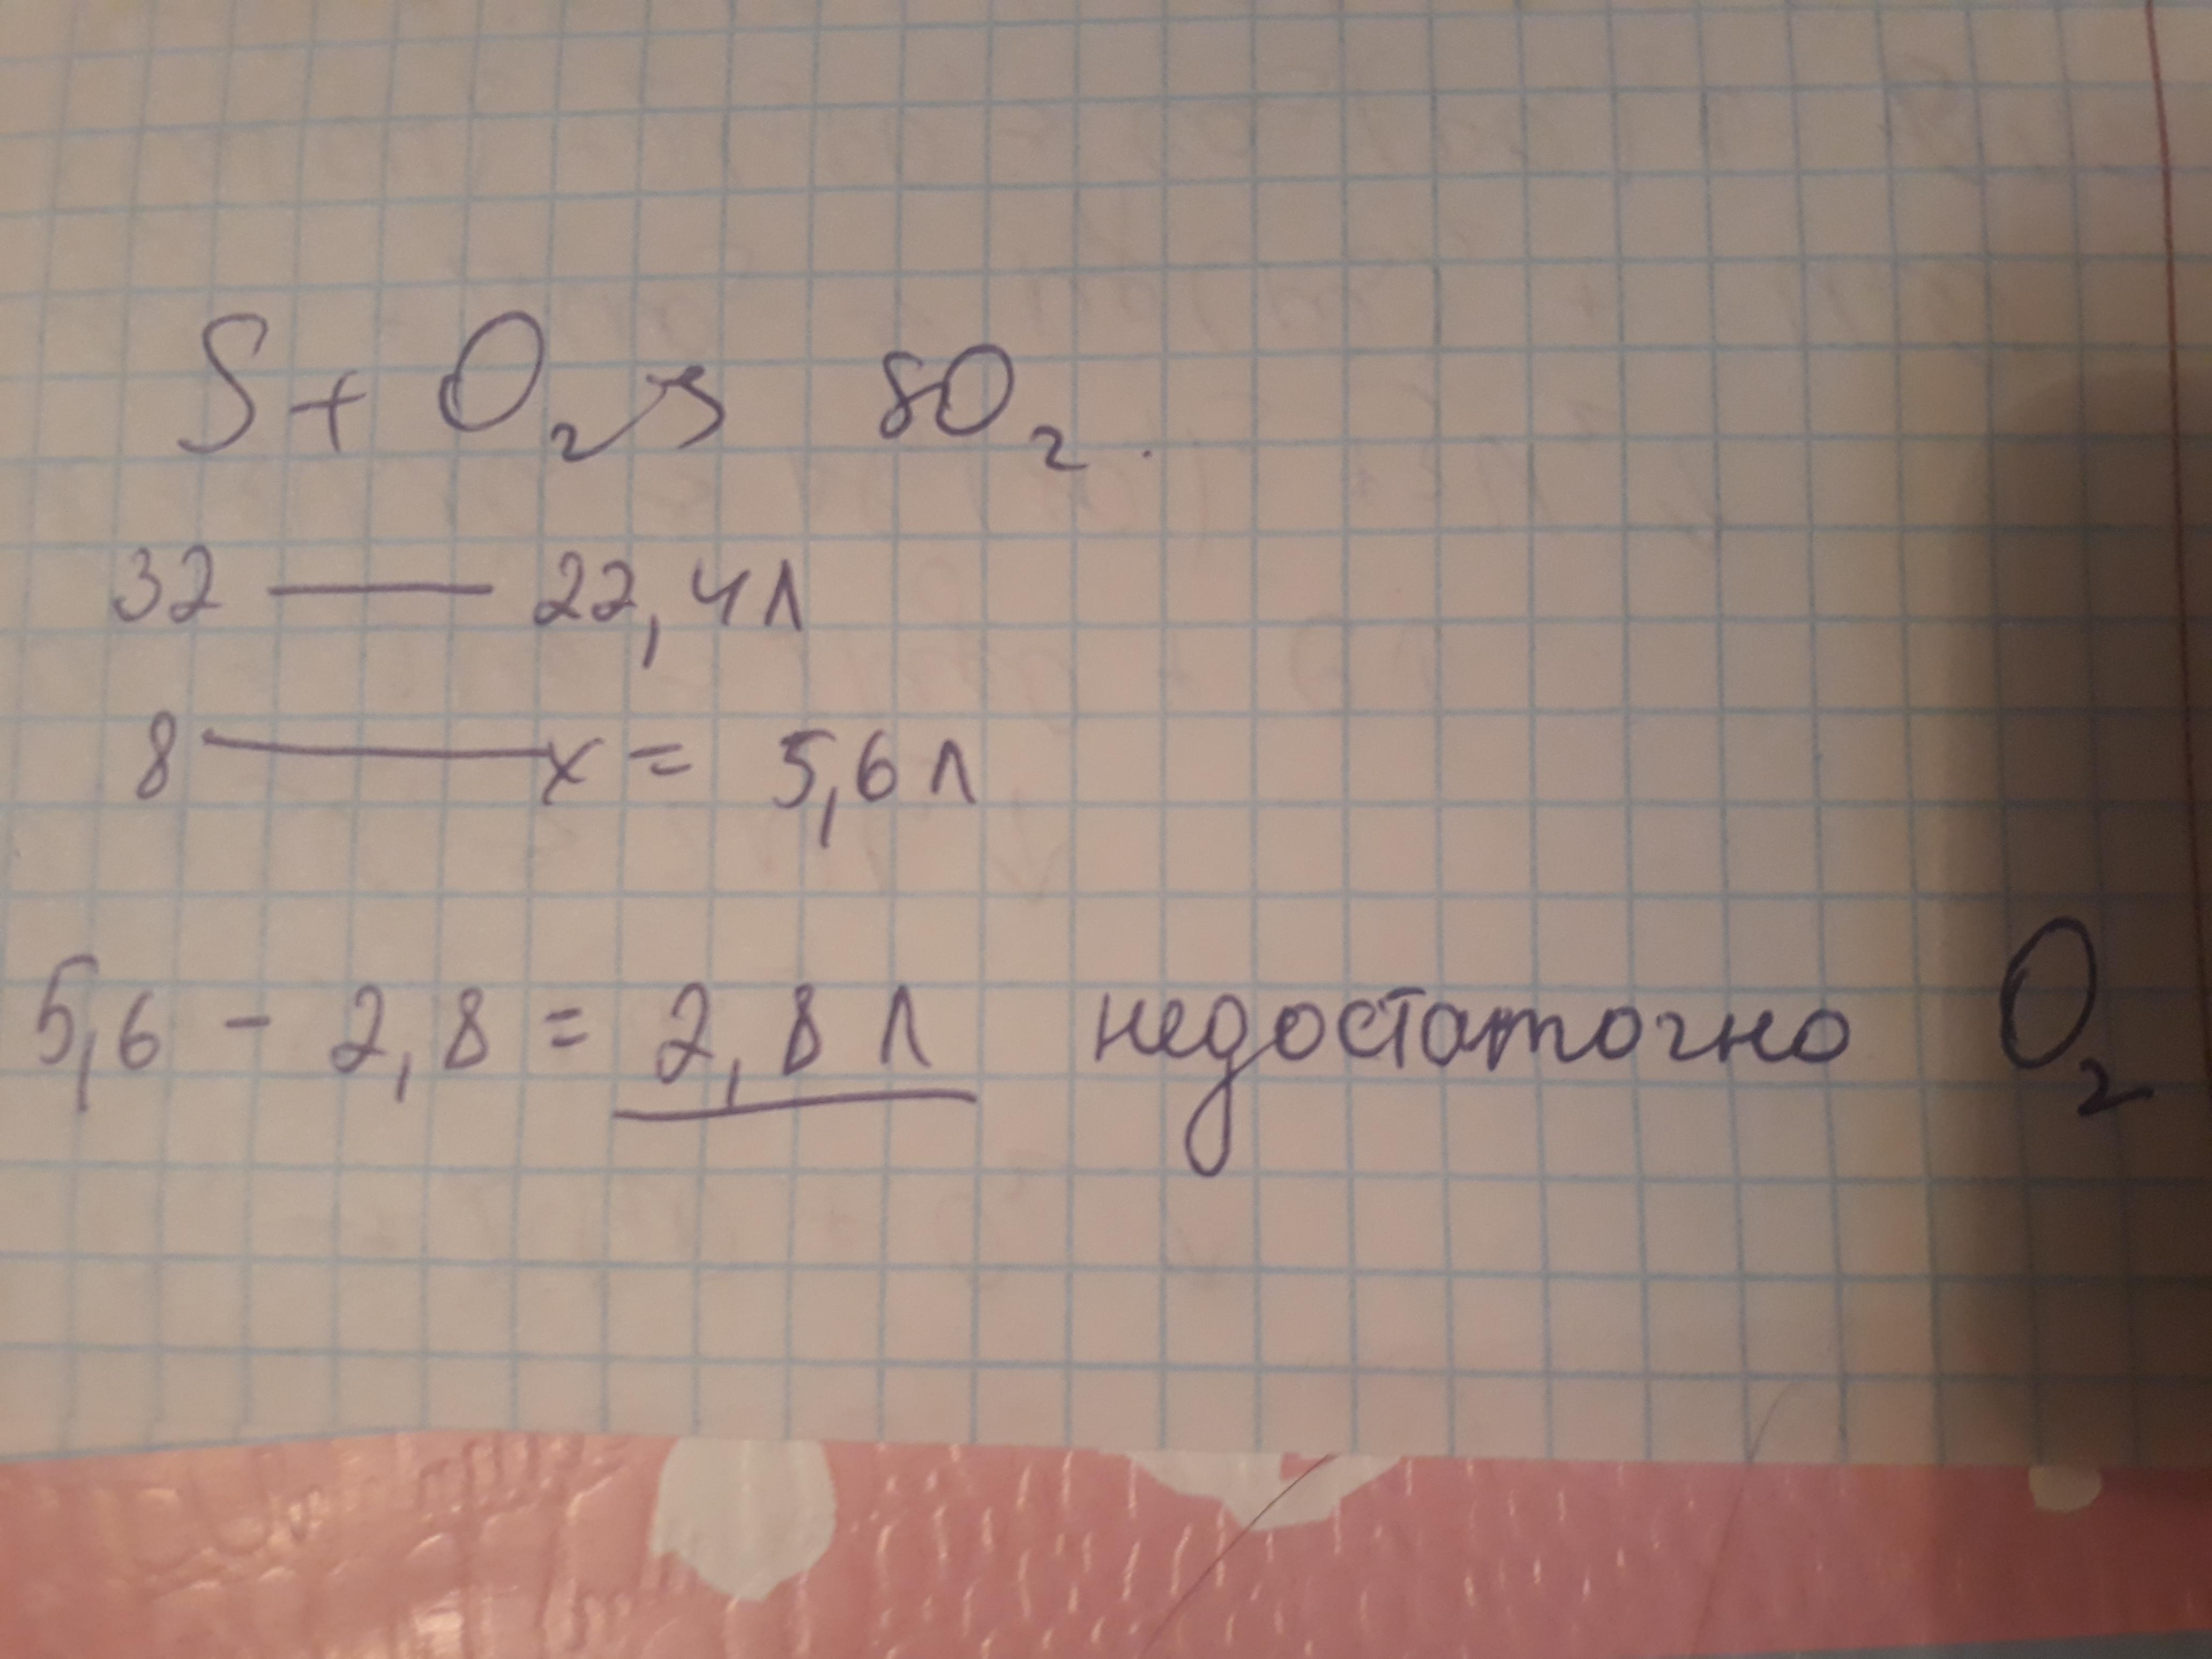 S + O₂ → SO₂.
32 — 22,4 л
8 — x = 5,6 л
5,6 - 2,8 = 2,8 л недостаточно O₂